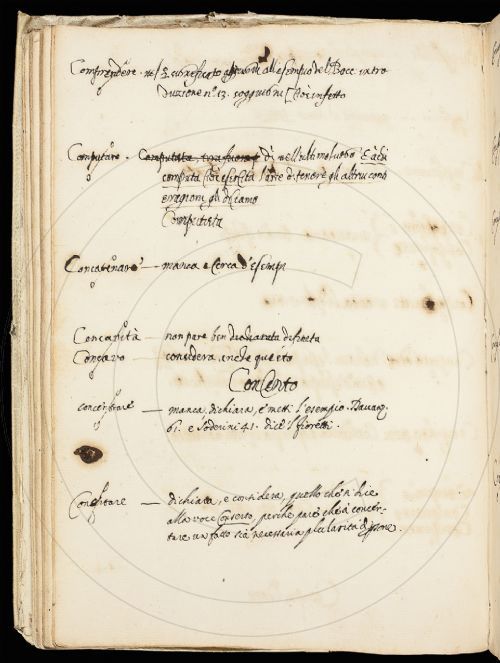 Comprendere. nel 3. significato aggiugni all'esempio del Bocc. intro
duzione nº. 12. soggiugni Cioè infetto
Computare. Computata, dì nell'ultimo luogo E a chi
computa cioè esercita l'arte di tenere gli altrui conti
e ragioni gli diciamo
Computista
Concatenare — manca e cerca d'esempi
Concavità — non pare ben dichiarata difinita
Concavo — considera anche questo
Concento
concentrare — manca, dichiara, e metti l'esempio. Davanz.
61. e Soderini 41. dice i fioretti.
Concertare — dichiara, e considera, quello che si dice
alla voce Conserto, perche pare che a concer-
tare un fatto sia necessaria pluralità di persone.